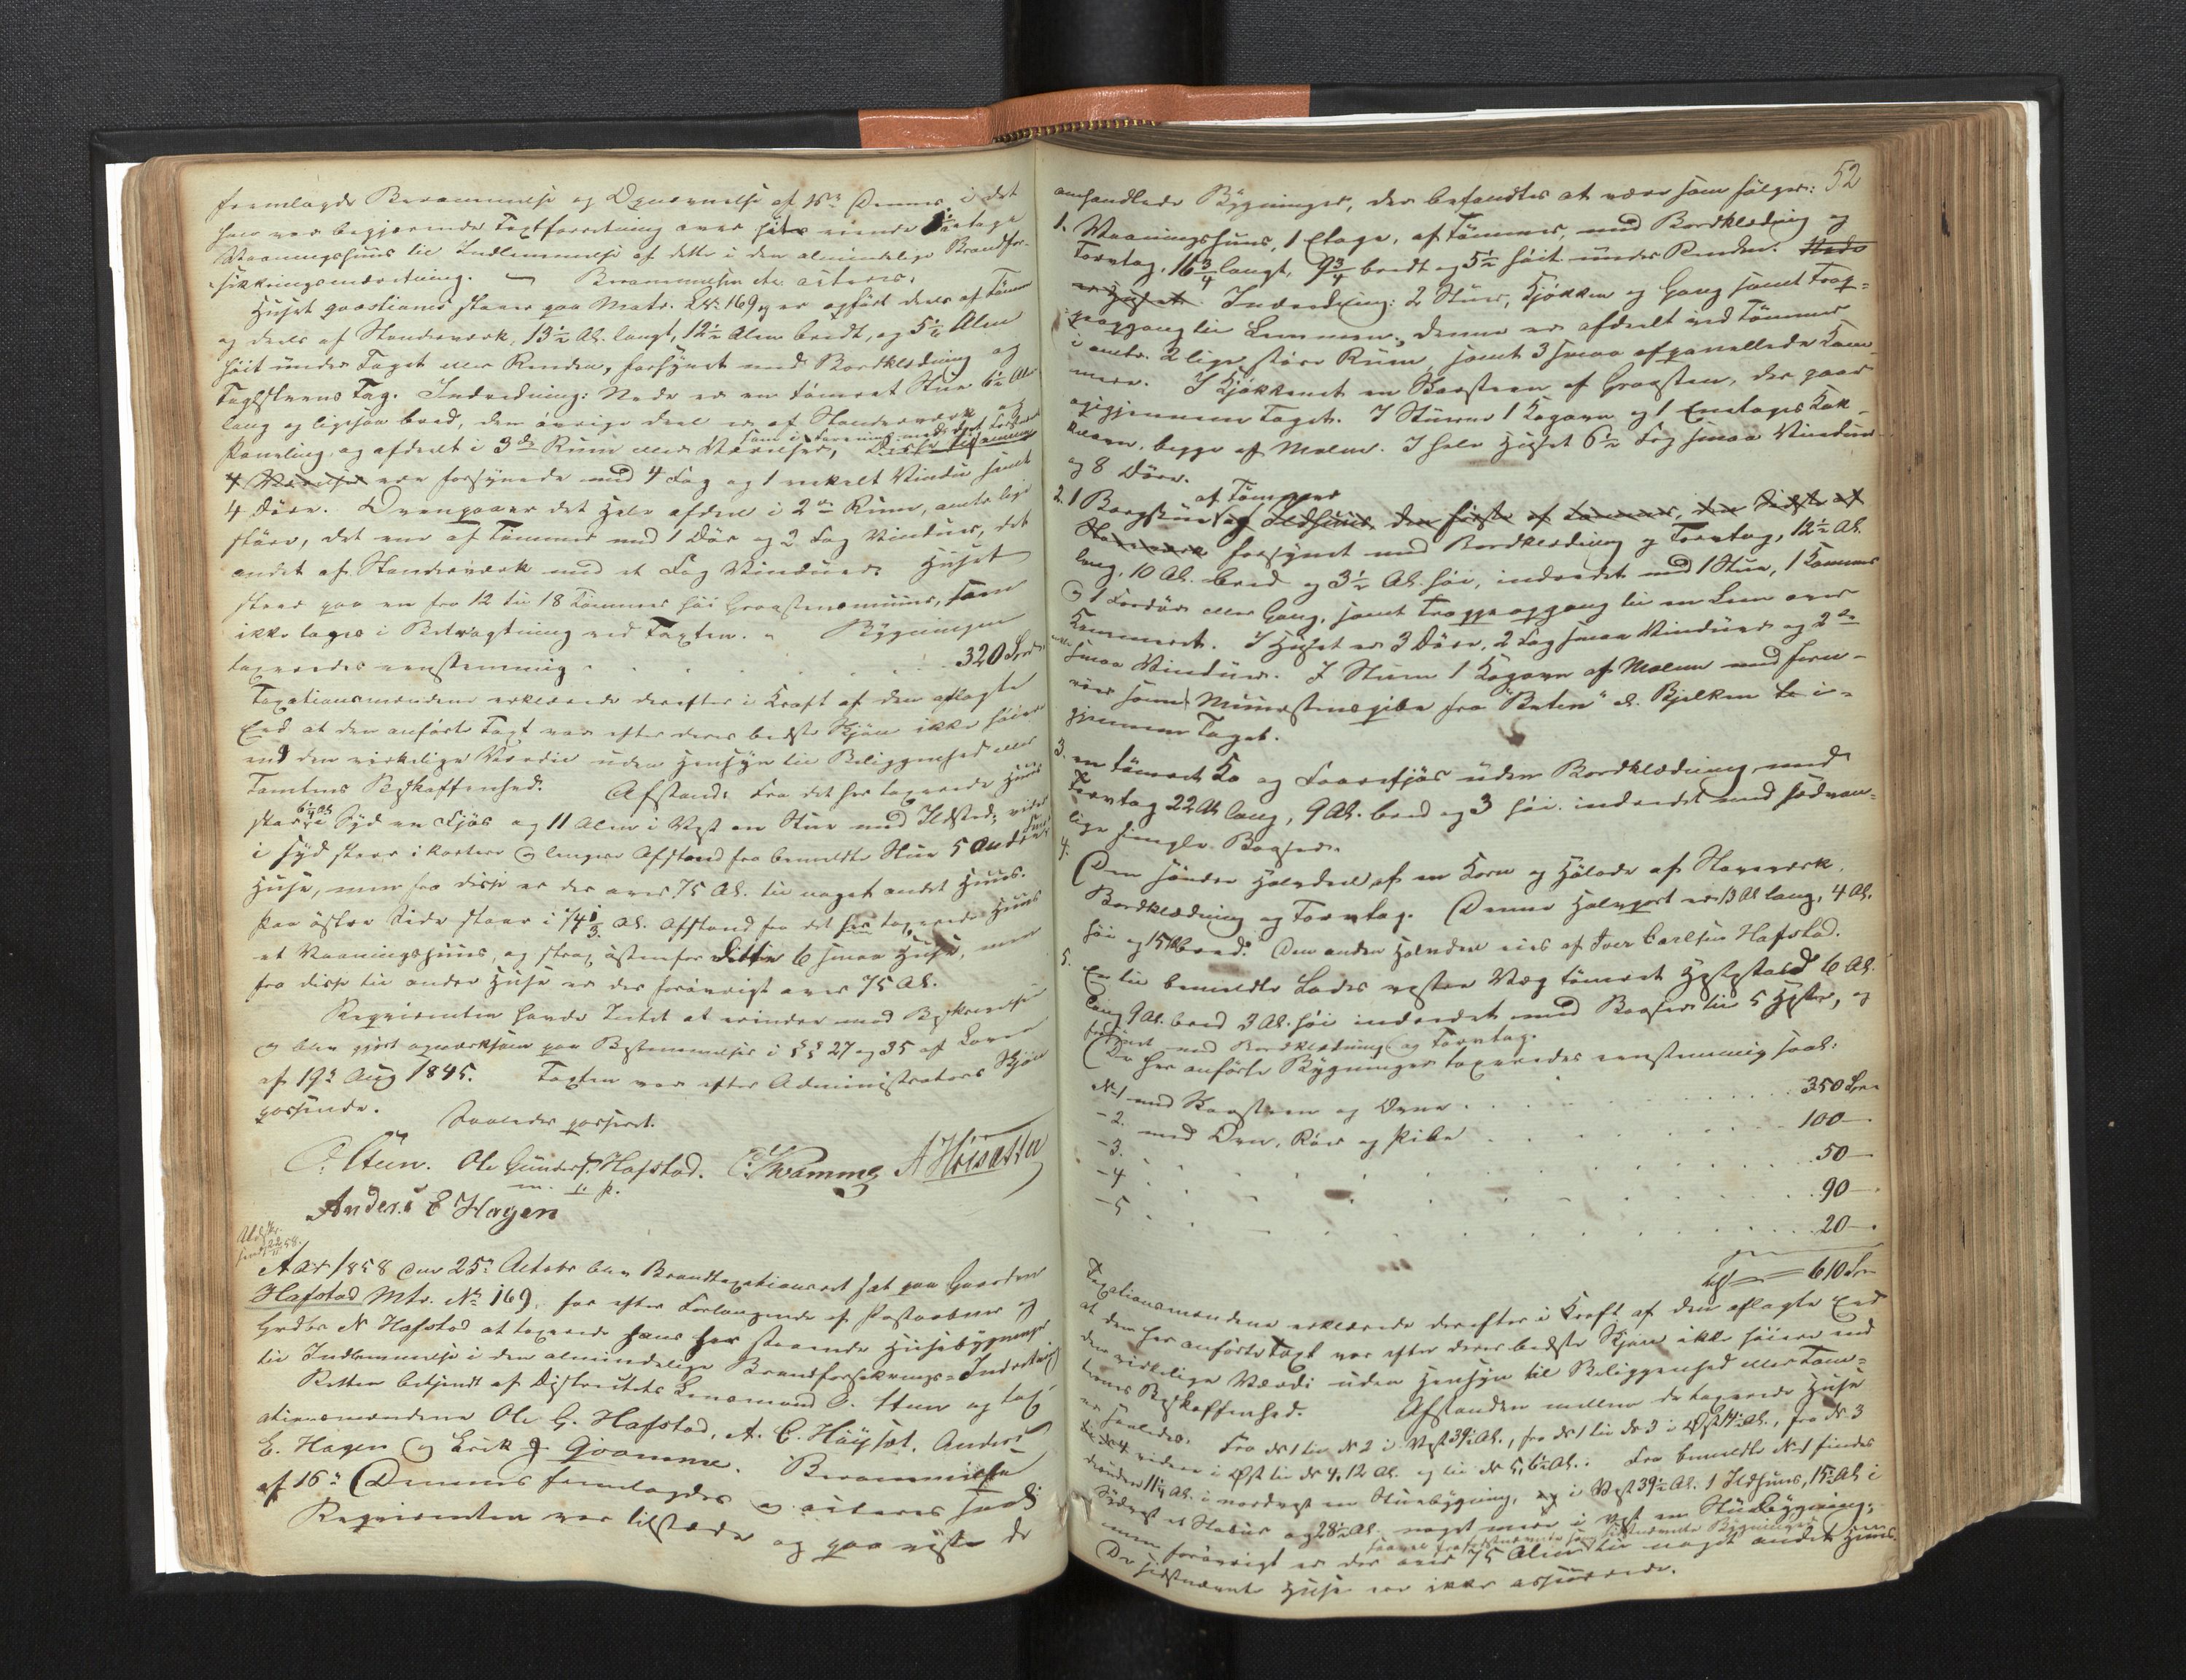 fremlagde Berammelse og Opnævnelse af 15de Dennes i det
han var begjærende Taxtforretning over sit eiende Etages
Vaaningshuus til Indlemmelse af dette i den almindelige Brandfor-
sikringsindretning. — Berammelsen etc. acteres.
Huset qvæstionis staar paa Matr. Nr 169, og er opført deels af Tømmer
og deels af Stenderværk, 13½ Al. langt, 12½ Alen bredt, og 5½ Alen
høit under Taget eller Renden, forsynet med Bordklædning og
Taghsteens Tag. Indredning: Nede er en tømret Stue 6½ Alen
lang og ligesaa bred, den øvrige Deel er af Stenderværk og
Paneling, og afdeelt i 3de Rum eller Værelser,
4 Værelser ere forsynede med 4 Fag og 1 enkelt Vindue samt
4 Døre. Ovenpaa er det Hele afdeelt i 2de Rum, omtr. lige
større, det ene af Tømmer med 1 Dør og 2 Fag Vinduer, det
andet af Stenderværk med et Fag Vinduer. Huset
staar paa en fra 12 til 18 Tommer høi Graasteensmuur, som
ikke tages i Betragtning ved Taxten. Bygningen
taxeredes eenstemmig . . . . . . 320 Spd.
Taxationsmændene erklærede derefter i Kraft af den aflagte
Eed at den anførte Taxt var efter deres bedste Skjøn ikke høiere
end den virkelige Værdie uden Hensyn til Beliggenhed eller
Tomtens Beskaffenhed. Afstand: Fra det her taxerede Huus
staar i Syd en Fjøs og 11 Alen i Vest en Stue med Ildsted, videre
i Syd staar i kortere og længere Afstand fra bemeldte Stue 5 andre
Huse, men fra disse er der over 75 Al. til noget andet Huus.
Paa østre Side staar i Al. Afstand fra det her taxerede Huus
et Vaaningshuus, og strax østenfor dette 6 smaa Huse, men
fra disse til andre Huse er der forøvrigt over 75 Al.
Reqvirenten havde Intet at erindre mod Beskrivelsen
og blev gjort opmærksom paa Bestemmelser i §§ 27 og 35 af Loven
af 19de Aug 1845. Taxten var efter Administrators Skjøn
passende.
Saaledes passeret.
O. Stuen. Ole Gunders. Hafstad. E. Kvamme A Høisæth
m. f. P.
Anders E Hagen
Aar 1858 den 25de Octobr blev Brandtaxationsret sat paa Gaarden
Hafstad Mtr. No 169, for efter Forlangende af Postaabner og
Grdbr N Hafstad at taxerede hans her staaende Huusebygninger
til Indlemmelse i den almindelige Brandforsikrings-Indretning
Retten betjent af Districtets Lensmand O. Stuen og tax-
ationsmændene Ole G. Hafstad, A. C. Høysæt, Anders
E. Hagen og Erik J. Qvamme. Berammelsen
af 16de Dennes fremlagdes og acteres saal:
Reqvirenten var tilstæde og paaviste de
52
omhandlede Bygninger, der befandtes at være som følger:
1. Vaaningshuus, 1 Etage, af Tømmer, med Bordklædning og
Torvtag, 16¾ langt, 9¾ bredt og 5½ høit under Renden. Nede
er Huset Indredning: 2 Stuer, Kjøkken og Gang samt Trap-
peopgang til Lemmen, denne er afdeelt ved Tømmer
i omtr. 2 lige større Rum, samt 3 smaa afpanellede Kam-
mere. I Kjøkkenet en Skorsteen af Graasten, der gaar
opigjennem Taget. I Stuerne 1 Kogovn og 1 Enetages Kak-
kelovn, begge af Malm. I hele Huset 6½ Fag smaa Vinduer
og 8 Døre.
af Tømmer
2. 1 Borgstue og Ildhuus den første af Tømmer, den Sidste af
Stavværk forsynet med Bordklædning og Torvtag, 12½ Al.
lang, 10 Al. bred og 3½ Al. høi, indredet med 1 Stue, 1 Kammer
og 1 Fordør eller Gang, samt Trappeopgang til en Lem over
Kammeret. I Huset er 3 Døre, 2 Fag smaa Vinduer og 2de
smaa Vinduer. I Stuen 1 Kogovn af Malm med Jern-
rør samt Muurstenspibe fra "Beten" ell. Bjelken i-
gjennem Taget.
3. en tømret Ko og Faarefjøs uden Bordklædning med
Torvtag 22 Al. lang, 9 Al. bred og 3 høi indredet med sædvan-
lige simple Baaser.
4. Den søndre Halvdeel af en Korn og Hølade af Stavværk.
Bordklædning og Torvtag. Denne Halvpart er 13 Al. lang, 4 Al.
høi og 15 Al. bred. Den anden Halvdeel eies af Iver Carlsen Hafstad.
5. En til bemeldte Lades vestre Væg tømret Hestestald 6 Al.
lang 9 Al. bred 3 Al. høi indredet med Baaser til 5 Heste, og
forsynet med Bordklædning og Torvtag.
De her anførte Bygninger taxeredes eenstemmig saal:
No 1 med Skorsteen og Ovne . . . . . 350 Spd
- 2. med Ovn, Rør og Pibe . . . . . 100 —
- 3. . . . . . 50 —
- 4 . . . . . 90 —.
- 5 . . . . . 20 —.
610 Spd
Taxationsmændene erklærede derefter i Kraft af den aflagte Eed
at den her anførte Taxt var efter deres bedste Skjøn ikke høiere end
den virkelige Værdi uden Hensyn til Beliggenhed eller Tom-
ternes Beskaffenhed. Afstanden mellem de taxerede Huse
er saaledes. Fra No 1 til No 2 i Vest 39½ Al., fra No 1 til No 3 i Øst Al., fra No 3
videre i Øst til No 4, 12 Al. og til No 5, 6½ Al.. Fra bemeldte No 1 findes
desuden 11½ Al. i nordvest en Stuebygning, og i Vest 39½ Al. 1 Ildhuus, 15½ Al. i
Sydvest et Stabur og 28½ Al. noget mere i Vest en Stuebygning;
men forøvrigt er der over 75 Alen til noget andet Huus.
De sidstnævnte Huse ere ikke assurerede.